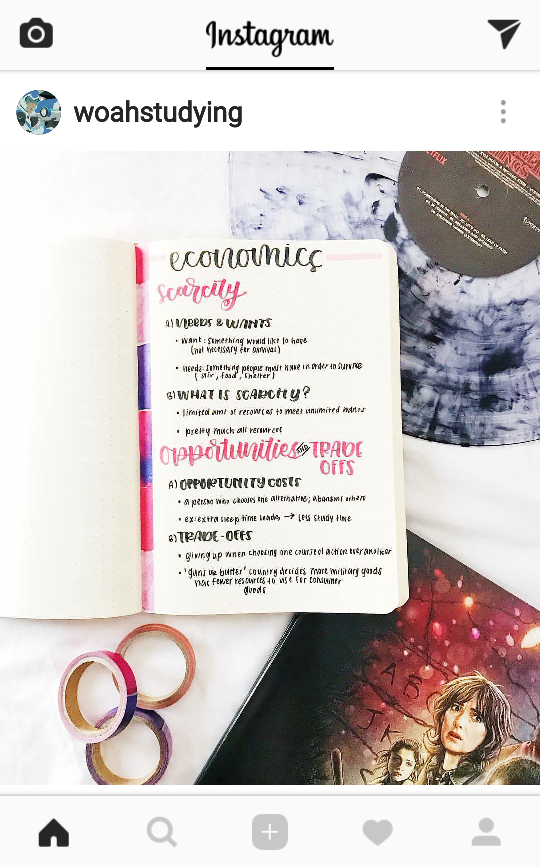 Instagram
woahstudying
NETFLIX
economics
scarcity
A) NEEDS & WANTS
• Want: Something would like to have
(not necessary for survival)
• Needs: Something people must have in order to survive
(air, food, shelter)
B) WHAT IS SCARCITY?
• limited amt of resources to meet unlimited wants
• pretty much all resources
opportunities AND TRADE
OFFS
A) OPPORTUNITY COSTS
• a person who chooses one alternative; abandons others
• ex: extra sleep time leads → less study time
B) TRADE-OFFS
• giving up when choosing one course of action over another
• "guns vs butter" country decides more military goods
fewer resources to use for consumer
goods
A B
J K